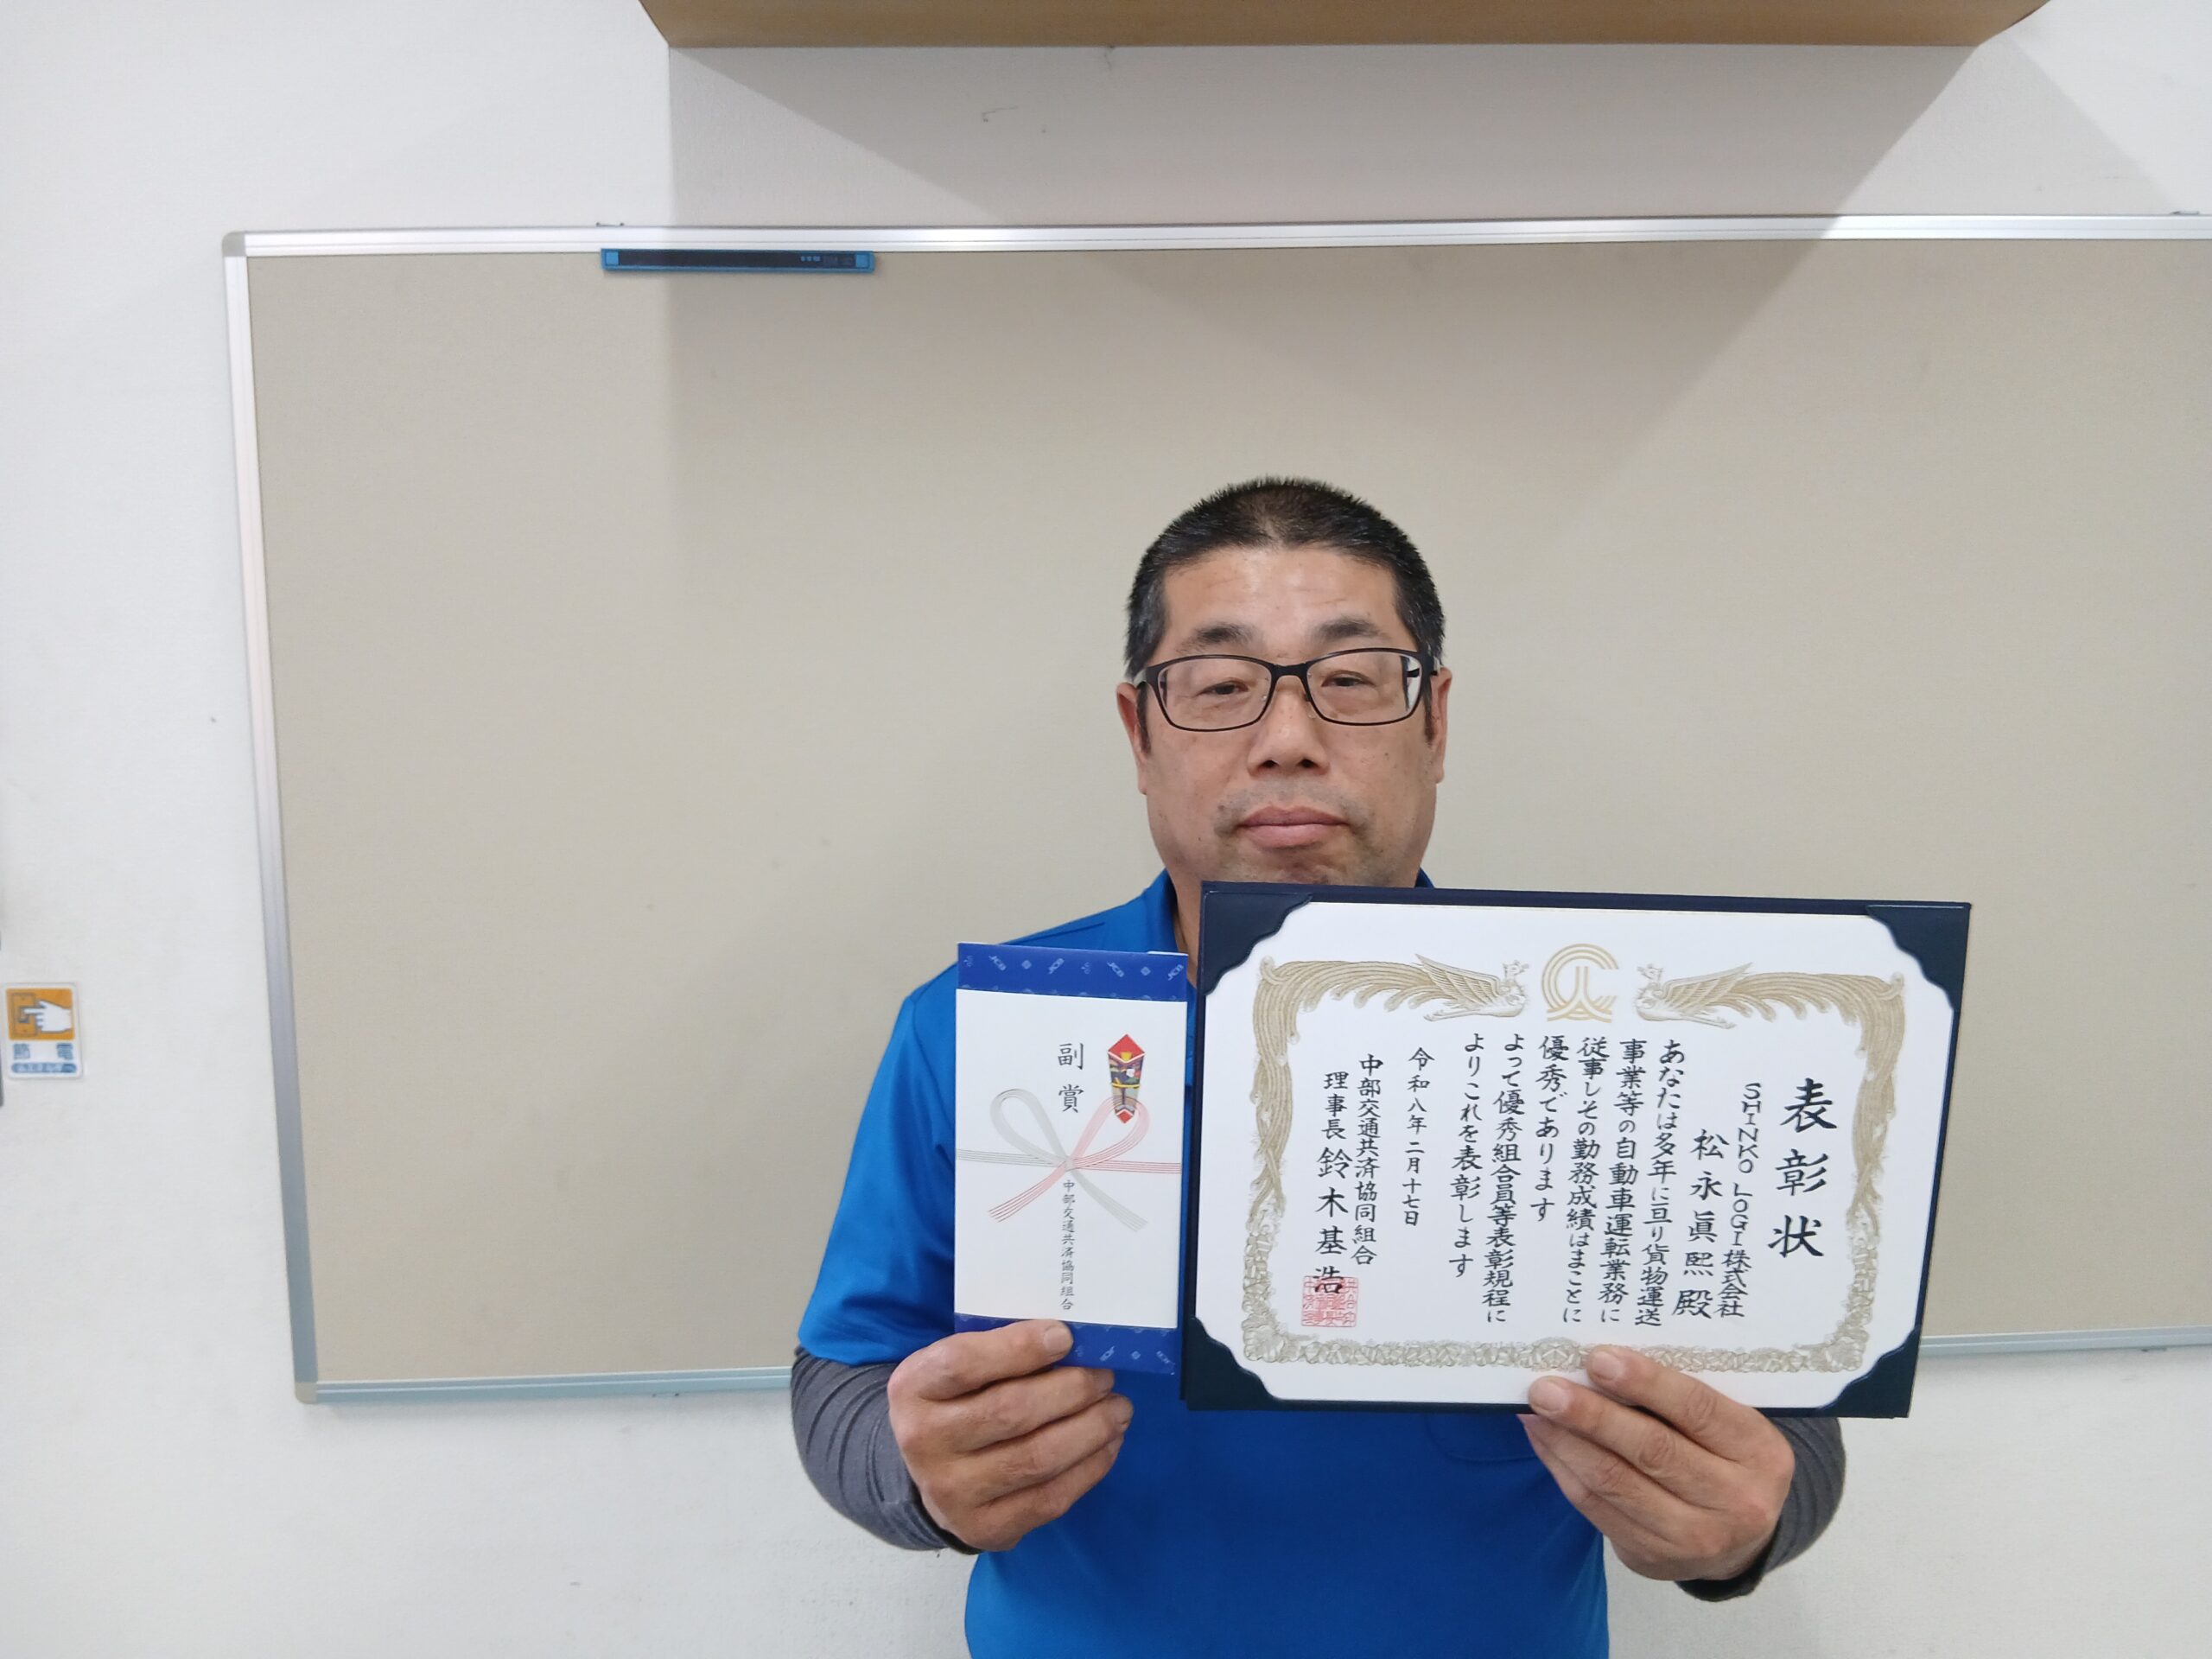 表彰状
SHINKO LOGI株式会社
松永眞熙殿
あなたは多年に亘り貨物運送
事業等の自動車運転業務に
従事しその勤務成績はまことに
優秀であります
よって優秀組合員等表彰規程に
よりこれを表彰します
令和八年二月十七日
中部交通共済協同組合
理事長 鈴木基浩
副賞
中部交通共済協同組合
JCB
JCB
JCB
JCB
節電